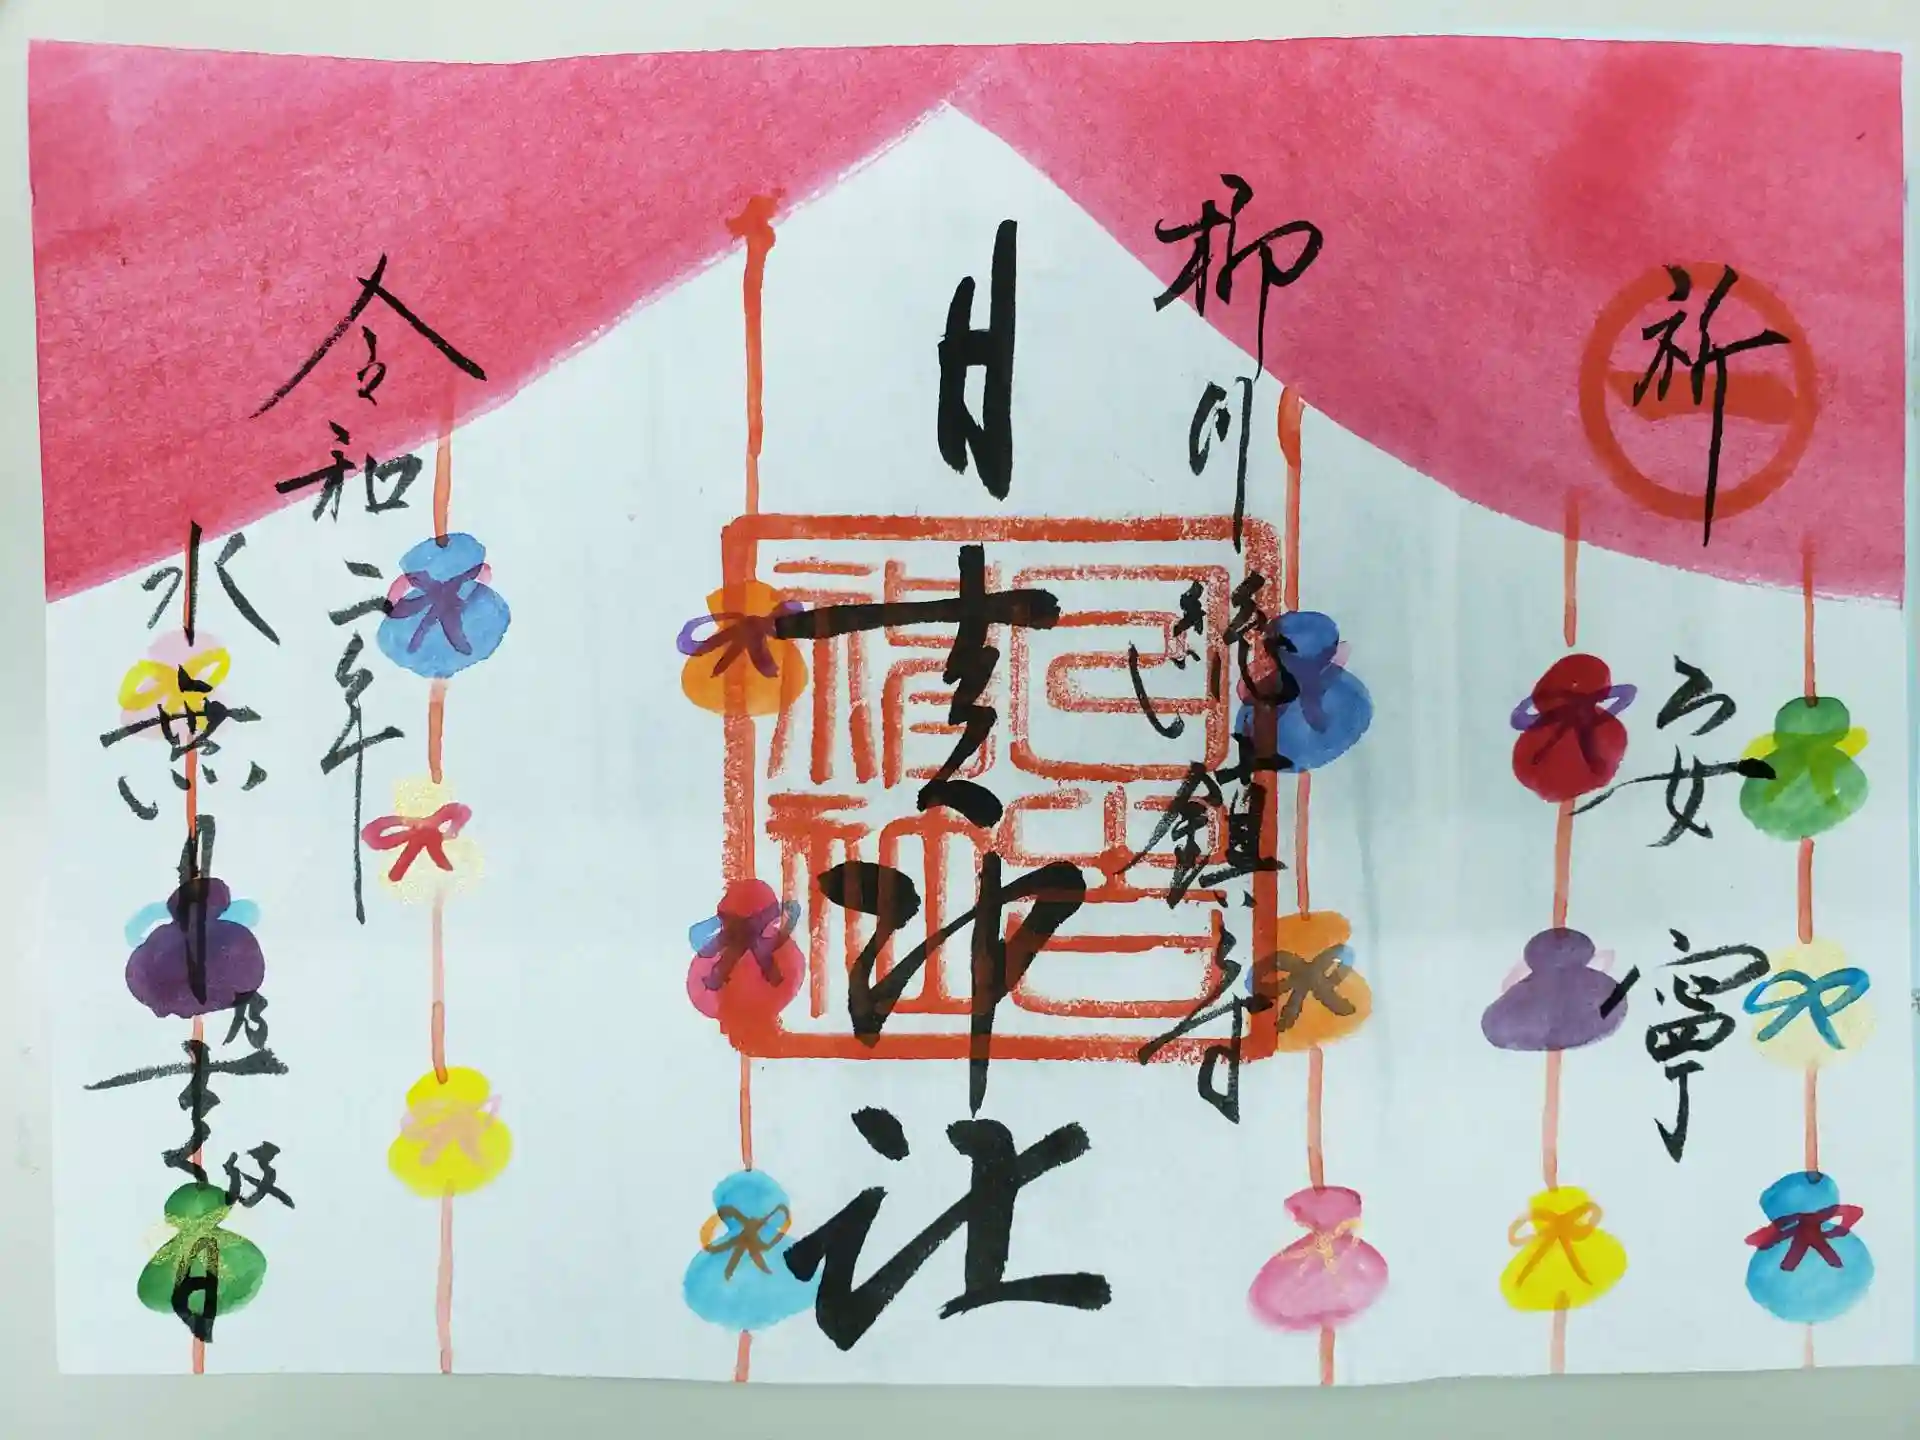 祈
安寧
柳川總鎮守
日吉神社
日吉神社
令和二年
水無月乃吉伎日